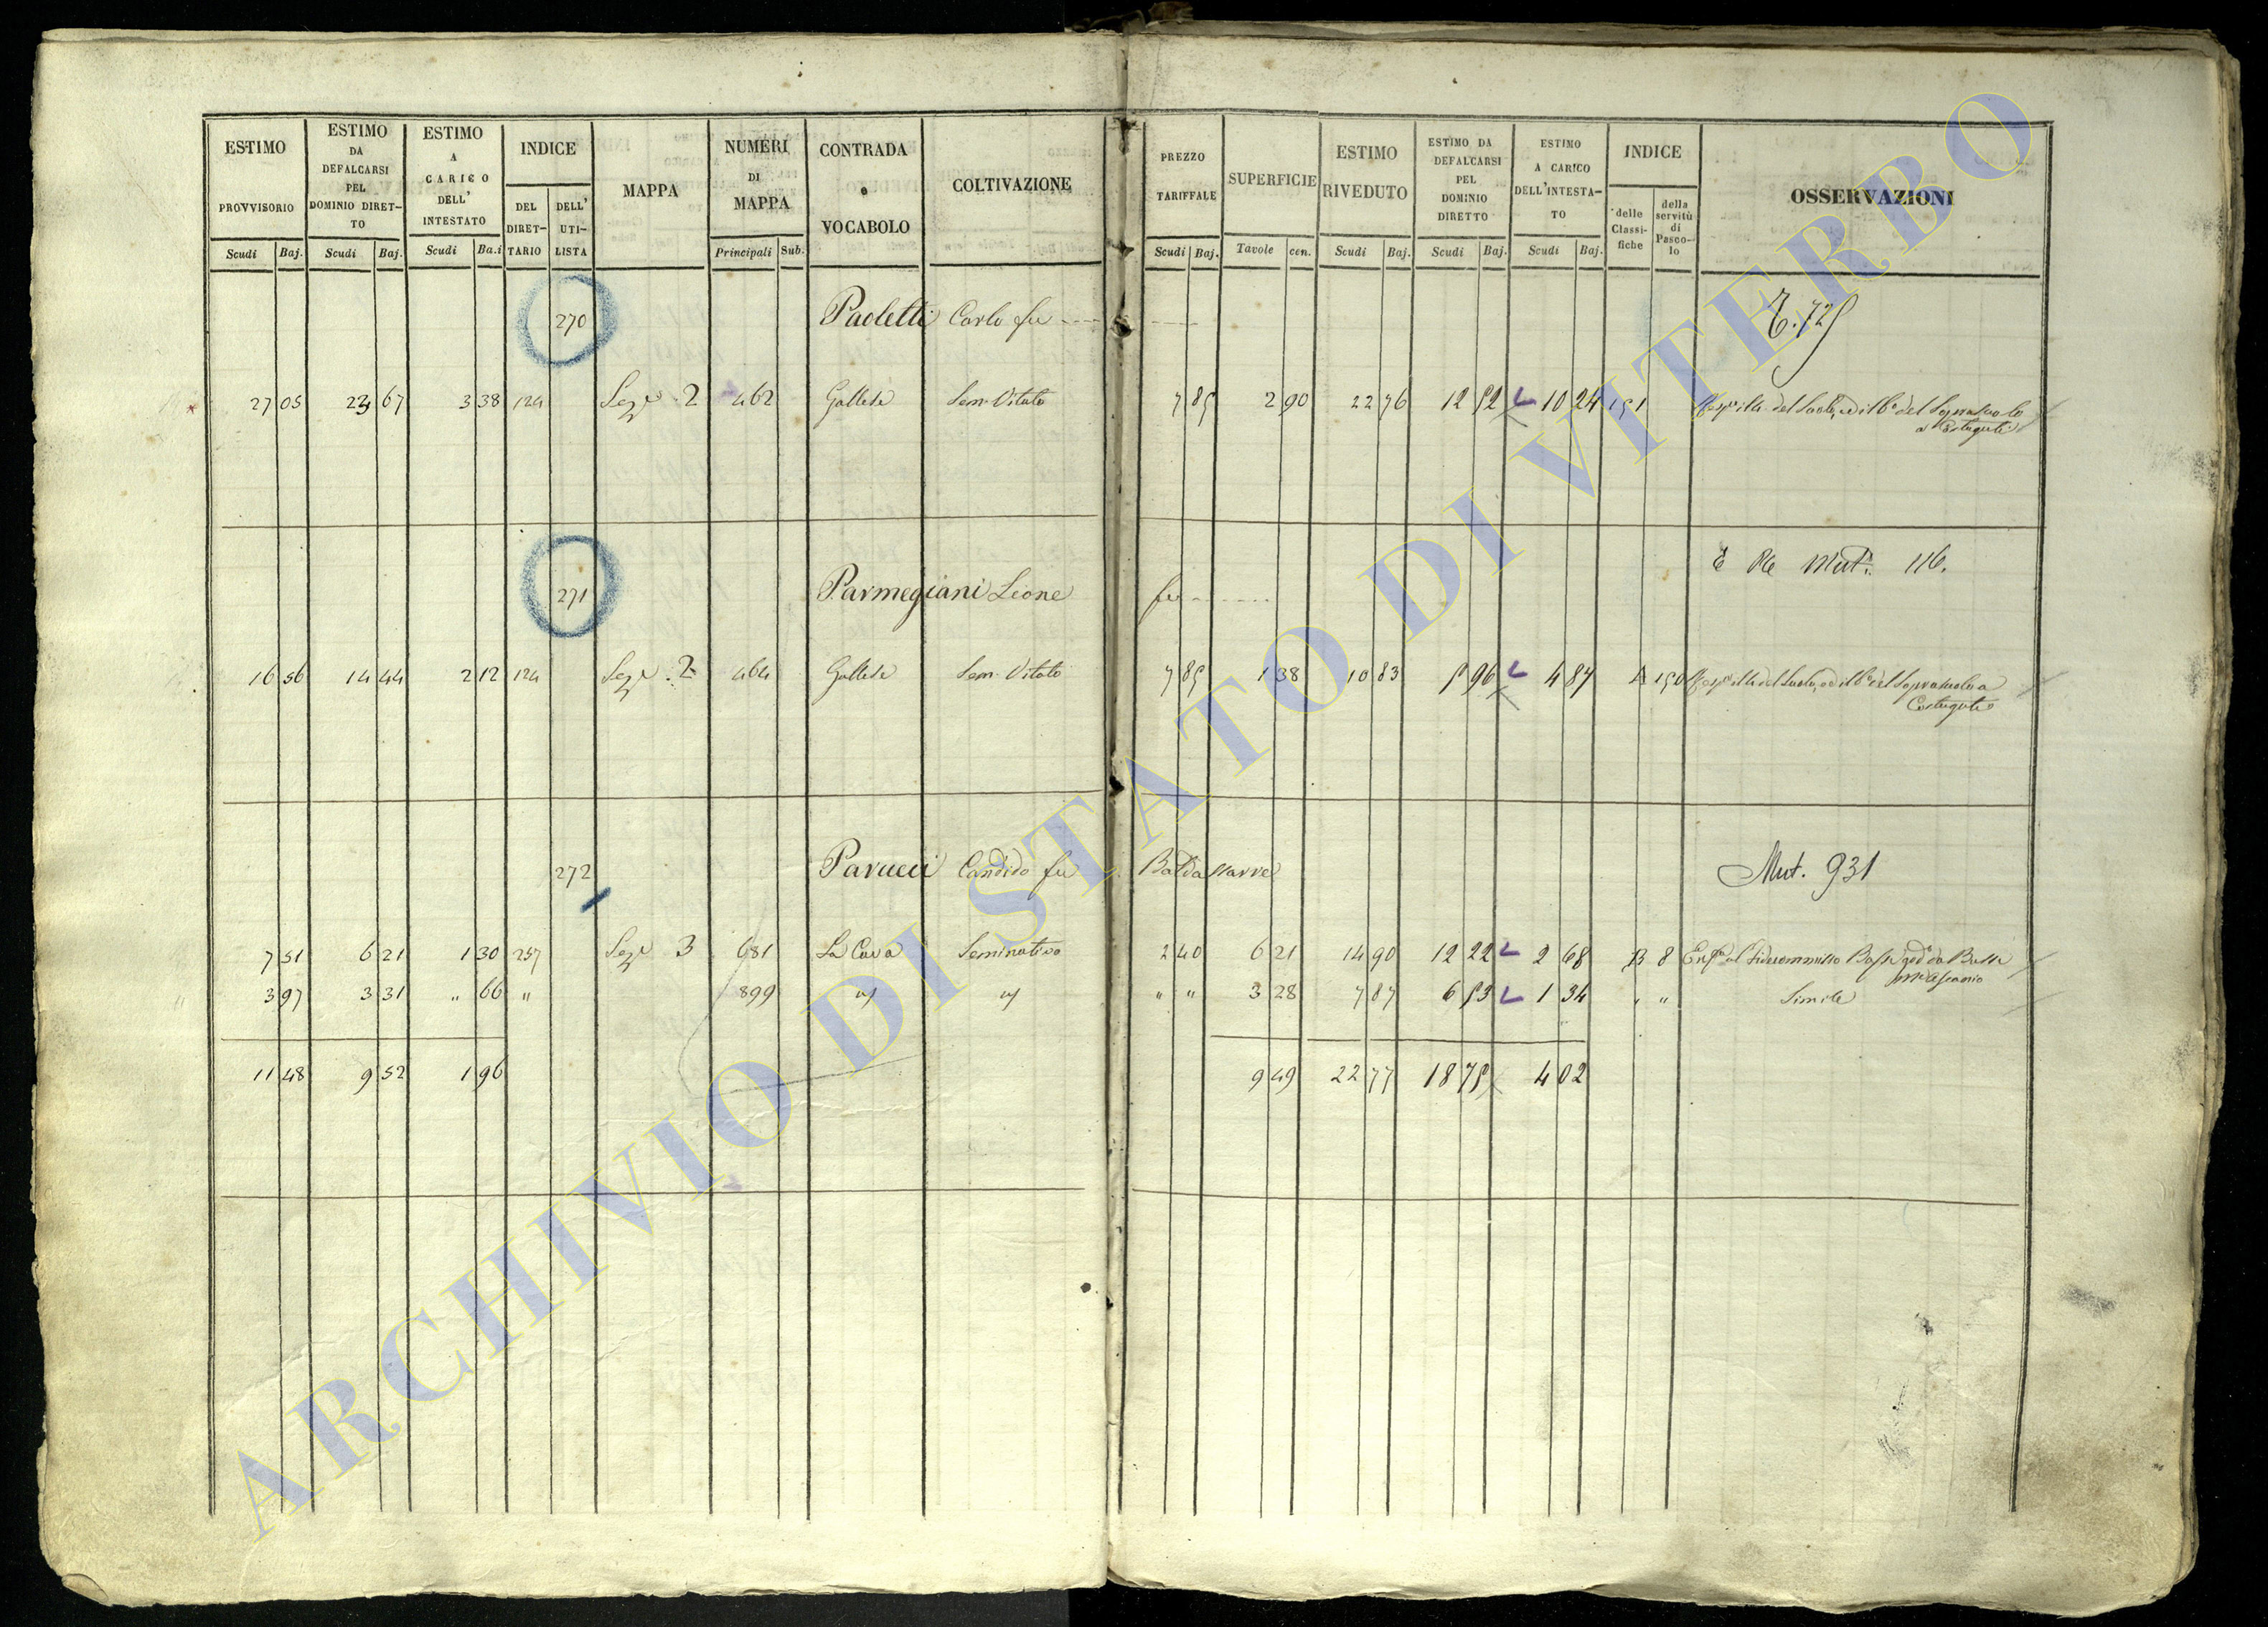 ESTIMO PROVVISORIO Scudi Baj.
ESTIMO DA DEFALCARSI PEL DOMINIO DIRETTO Scudi Baj.
ESTIMO A CARICO DELL' INTESTATO Scudi Ba.i
INDICE DEL DIRETTARIO DELL' UTILISTA
MAPPA
NUMERI DI MAPPA Principali Sub.
CONTRADA o VOCABOLO
COLTIVAZIONE
PREZZO TARIFFALE Scudi Baj.
SUPERFICIE Tavole cen.
ESTIMO RIVEDUTO Scudi Baj.
ESTIMO DA DEFALCARSI PEL DOMINIO DIRETTO Scudi Baj.
ESTIMO A CARICO DELL'INTESTATO Scudi Baj.
INDICE delle Classifiche della servitù di Pascolo
OSSERVAZIONI
270 Paoletti Carlo fu
27 05 23 67 3 38 124 Sez.e 2 462 Gallese Sem. Vitato 7 85 2 90 22 76 12 52 10 24 151 del Suolo, ed il del Soprasuolo
a Costaguti
271 Parmegiani Leone fu Mut. 116.
16 56 14 44 2 12 124 Sez.e 2 464 Gallese Sem. Vitato 7 85 1 38 10 83 5 96 4 87 150 del Suolo, ed il del Soprasuolo a
Costaguti
272 Parucci Candido fu Baldassarre Mut. 931
7 51 6 21 1 30 257 Sez.e 3 681 La Cava Seminativo 2 40 6 21 14 90 12 22 2 68 B 8 al Fidecommisso
3 97 3 31 " 66 " 899 " " 3 28 7 87 6 53 1 34 " " Simile
11 48 9 52 1 96 9 49 22 77 18 75 4 02
ARCHIVIO DI STATO DI VITERBO